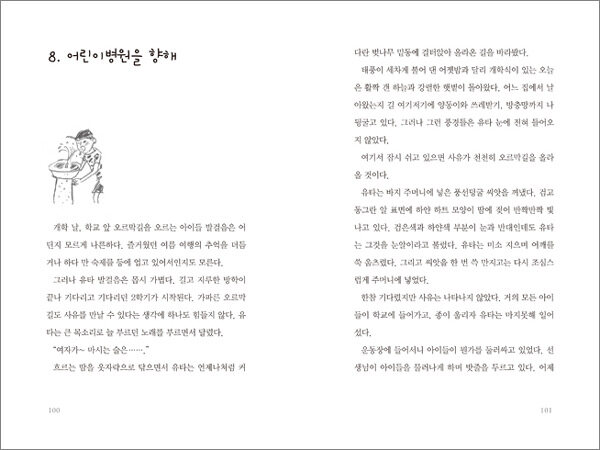 8. 어린이병원을 향해
개학 날, 학교 앞 오르막길을 오르는 아이들 발걸음은 어
딘지 모르게 나른하다. 즐거웠던 여름 여행의 추억을 더듬
거나 하다 만 숙제를 등에 업고 있어서인지도 모른다.
그러나 유타 발걸음은 몹시 가볍다. 길고 지루한 방학이
끝나 기다리고 기다리던 2학기가 시작된다. 가파른 오르막
길도 사유를 만날 수 있다는 생각에 하나도 힘들지 않다. 유
타는 큰 목소리로 늘 부르던 노래를 부르면서 달렸다.
“여자가~ 마시는 술은…….”
흐르는 땀을 옷자락으로 닦으면서 유타는 언제나처럼 커
100
다란 벚나무 밑동에 걸터앉아 올라온 길을 바라봤다.
태풍이 세차게 불어 댄 어젯밤과 달리 개학식이 있는 오늘
은 활짝 갠 하늘과 강렬한 햇볕이 돌아왔다. 어느 집에서 날
아왔는지 길 여기저기에 양동이와 쓰레받기, 방충망까지 나
뒹굴고 있다. 그러나 그런 풍경들은 유타 눈에 전혀 들어오
지 않았다.
여기서 잠시 쉬고 있으면 사유가 천천히 오르막길을 올라
올 것이다.
유타는 바지 주머니에 넣은 풍선덩굴 씨앗을 꺼냈다. 검고
동그란 알 표면에 하얀 하트 모양이 땀에 젖어 반짝반짝 빛
나고 있다. 검은색과 하얀색 부분이 눈과 반대인데도 유타
는 그것을 눈알이라고 불렀다. 유타는 미소 지으며 어깨를
쓱 움츠렸다. 그리고 씨앗을 한 번 꼭 만지고는 다시 조심스
럽게 주머니에 넣었다.
한참 기다렸지만 사유는 나타나지 않았다. 거의 모든 아이
들이 학교에 들어가고, 종이 울리자 유타는 마지못해 일어
섰다.
운동장에 들어서니 아이들이 뭔가를 둘러싸고 있었다. 선
생님이 아이들을 물러나게 하며 밧줄을 두르고 있다. 어제
101